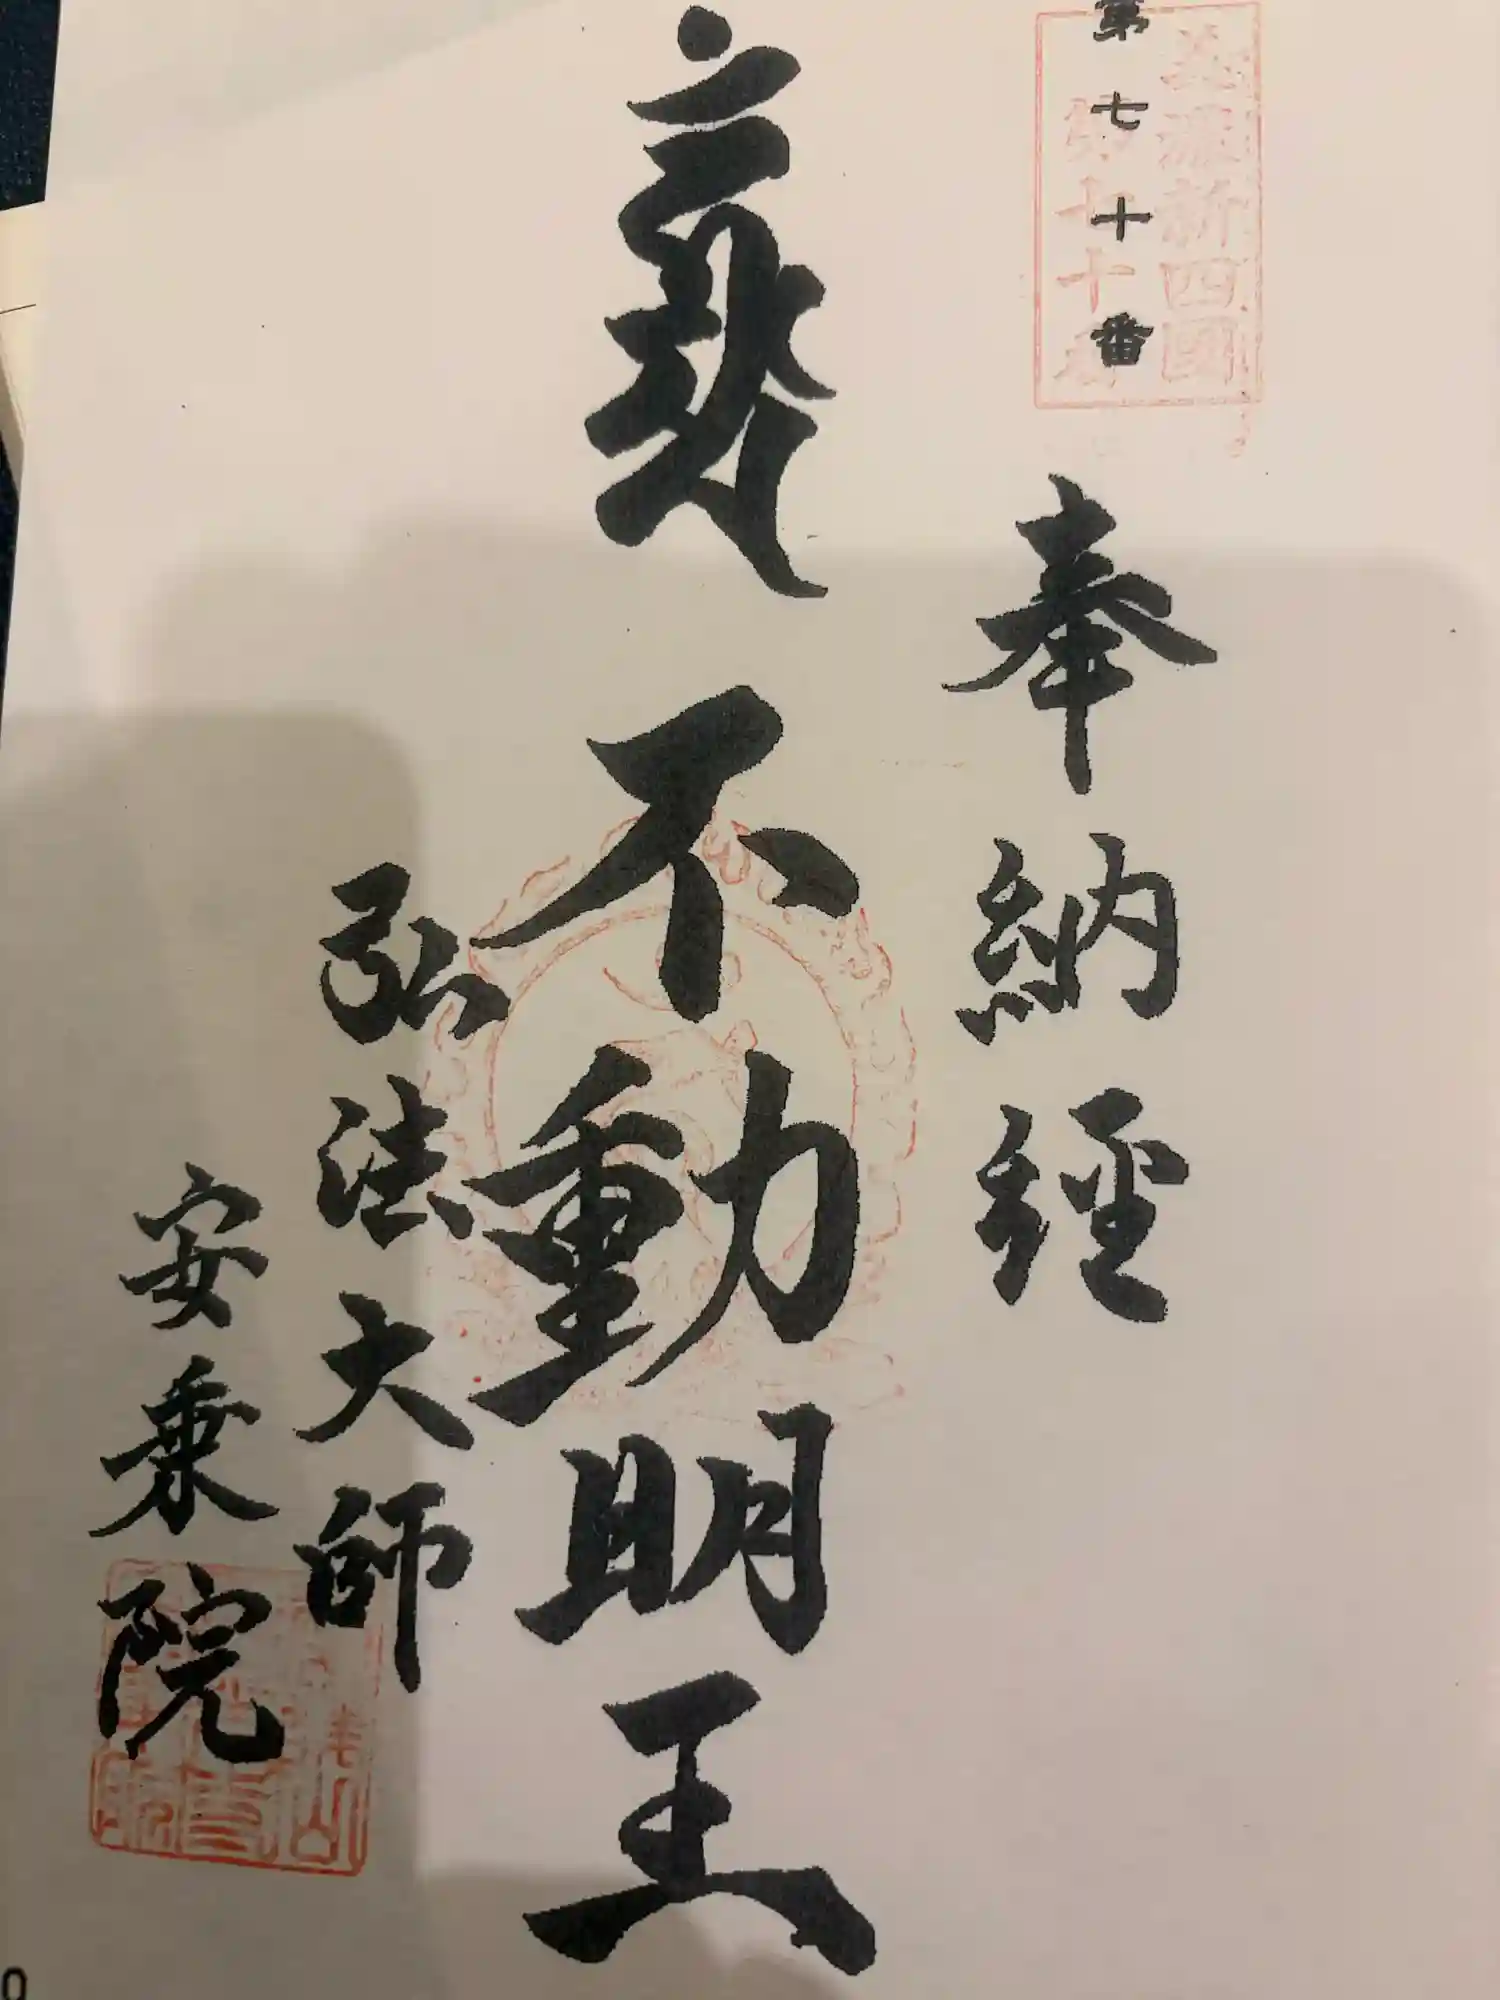 第七十番
美濃新四國
第七十番
奉納經
不動明王
弘法大師
安乗院